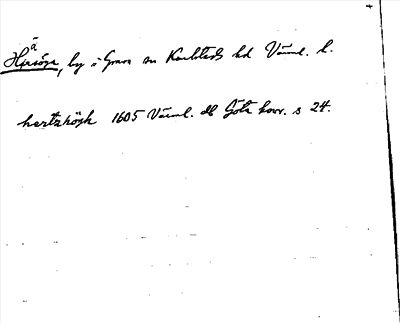 Hjäsöga, by i Grava sn Karlstads hd Värml. l.
hertzhögh 1605 Värml. db Göta hovr. s 24.